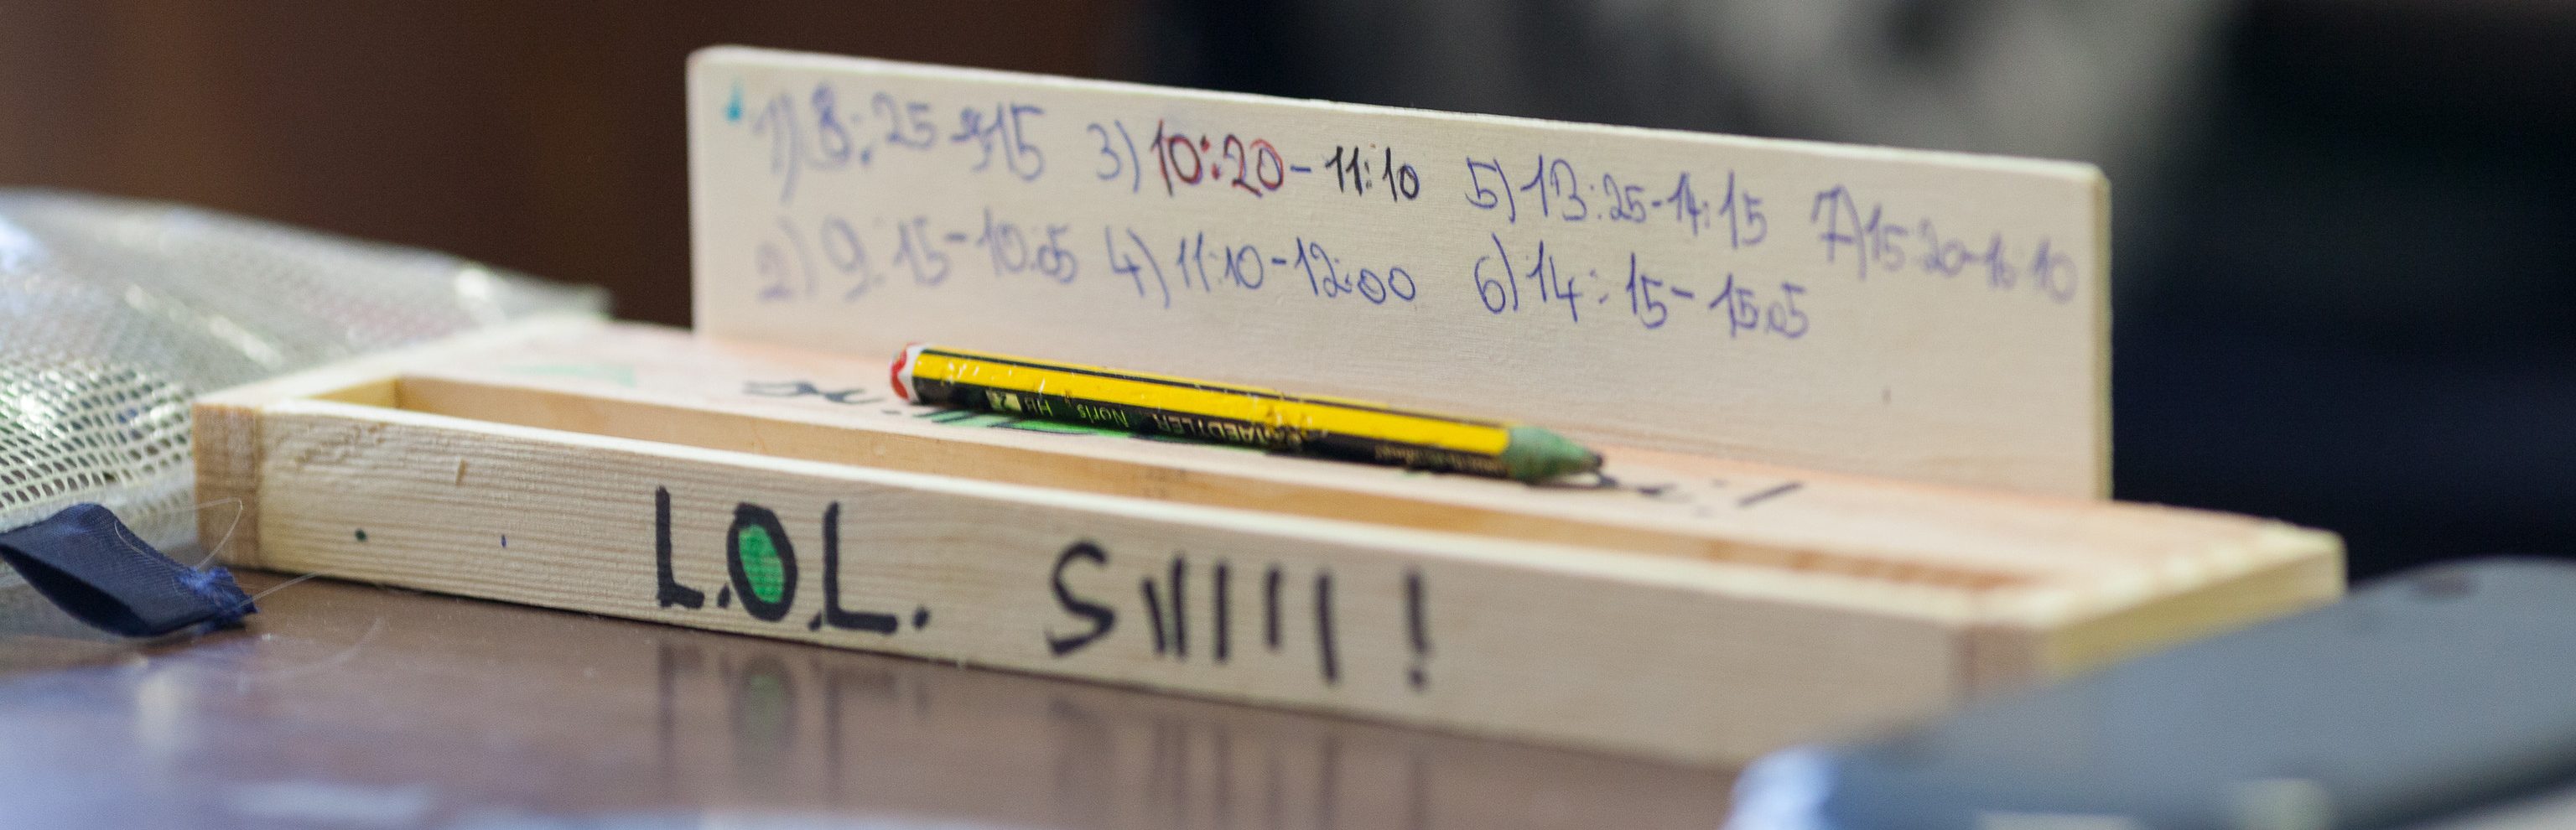 1) 8:25-9:15
2) 9:15-10:05
3) 10:20-11:10
4) 11:10-12:00
5) 13:25-14:15
6) 14:15-15:05
7) 15:20-16:10
STAEDTLER Noris HB 2
L.O.L. SIIIII!